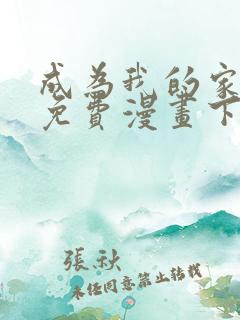 成為我的家
免費漫畫下
張秋
未经同意禁止转载